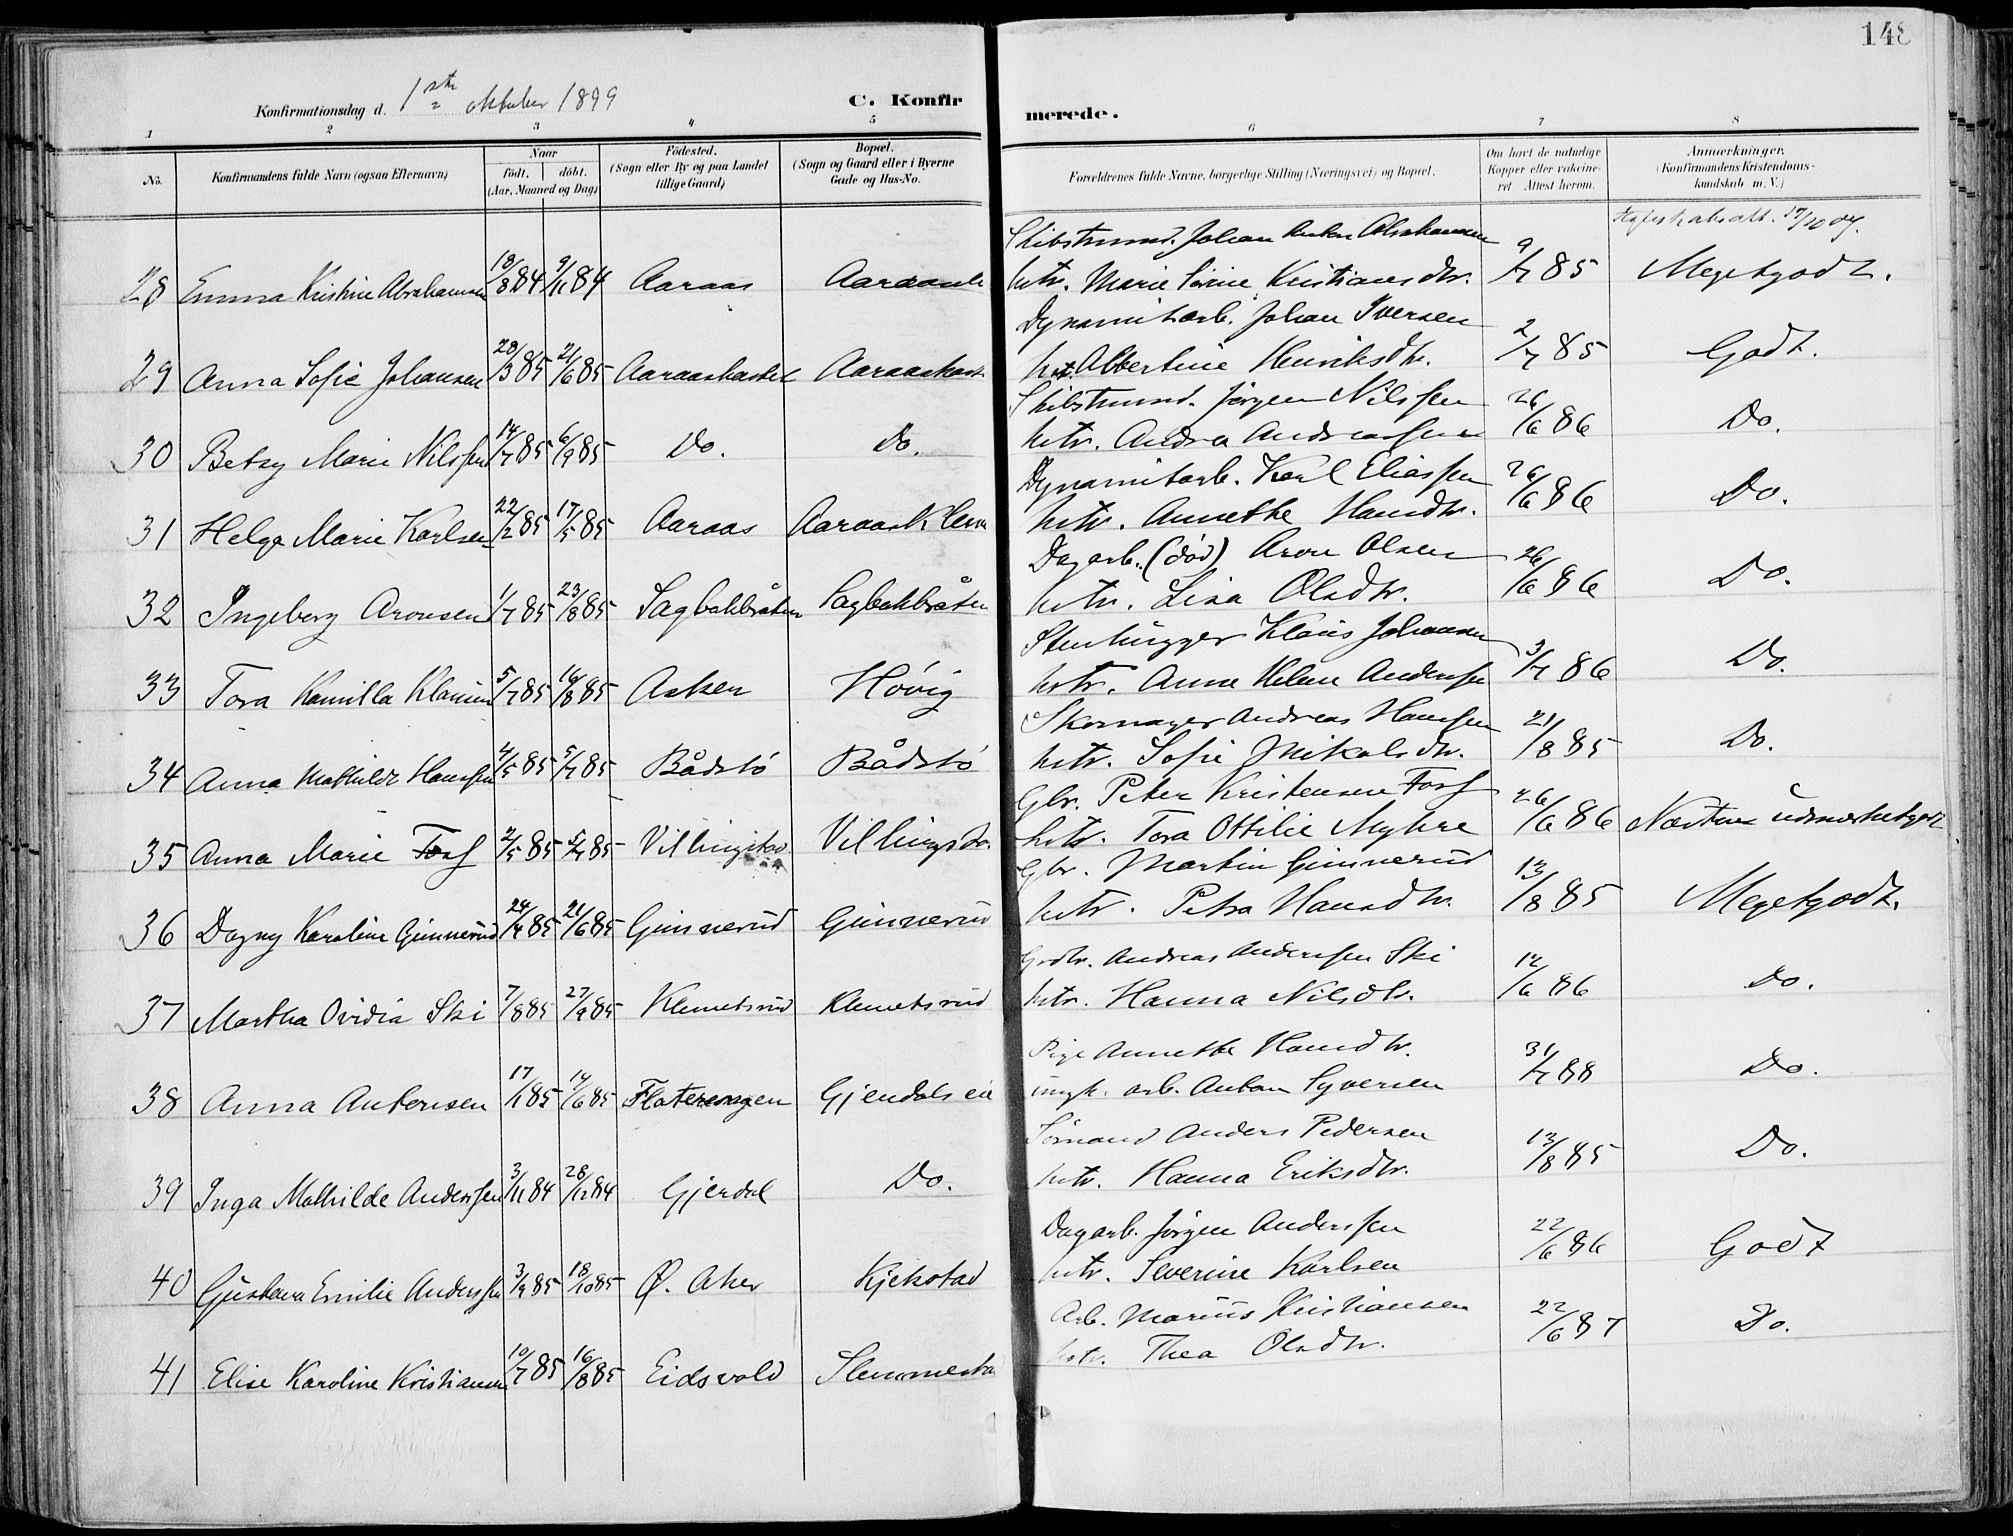 148
Konfirmationsdag d. 1ste oktober 1899
C. Konfirmerede.
1 2 3 4 5 6 7 8
No. Konfirmandens fulde Navn (ogsaa Efternavn)
Naar
födt. döbt.
(Aar, Maaned og Dag)
Födested.
(Sogn eller By og paa Landet
tillige Gaard)
Bopæl.
(Sogn og Gaard eller i Byerne
Gade og Hus-No.
Forældrenes fulde Navne, borgerlige Stilling (Næringsvei) og Bopæl.
Om havt de naturlige
Kopper eller vakcine-
ret. Attest herom.
Anmærkninger.
(Konfirmandens Kristendoms-
kundskab m. V.)
Skibstmmd. Johan Anton Abrahamsen
28 Emma Kristine Abrahamsen 18/8 84 9/11 84 Aaraas
htr. Marie Sørine Kristiansdtr. 9/7 85 Megetgodt.
Dynamitarb. Johan Iversen
29 Anna Sofie Johansen 28/3 85 21/6 85 Aaraaskastet
htr. Albertine Henriksdtr. 2/7 85 Godt.
Skibstmmd. Jørgen Nilssen
30 Betsy Marie Nilssen 14/7 85 6/9 85 Do. Do.
hstr. Andrea Andreassen 26/6 86 Do.
Dynamitarb. Karl Eliassen
31 Helga Marie Karlsen 22/2 85 17/5 85 Aaraas
hstr. Annethe Hansdtr. 26/6 86 Do.
Dagarb. (død) Aron Olsen
32 Ingeborg Aronsen 1/7 85 23/8 85 Sagbakbråten Sagbakbråten
hstr. Lisa Olsdtr. 26/6 86 Do.
Stenhugger Klaus Johansen
33 Tora Kamilla Klausen 5/7 85 16/8 85 Asker Høvig
hstr. Anne Helene Andersen 3/7 86 Do.
Skomager Andreas Hanssen
34 Anna Mathilde Hanssen 4/5 85 5/7 85 Bådstø Bådstø
hstr. Sofie Mikalsdtr. 21/8 85 Do.
Gbr. Peter Kristensen Foss
35 Anna Marie Foss 2/5 85 5/7 85 Villingstad Villingstad
hstr. Tora Ottilie Myhre 26/6 86 Næsten udmærketgodt
Gbr. Martin Gunnerud
36 Dagny Karoline Gunnerud 24/4 85 21/6 85 Gunnerud Gunnerud
hstr. Petra Hansdtr. 13/8 85 Megetgodt.
Andreas Anderssen Ski
37 Martha Ovidia Ski 7/8 85 27/9 85 Klemetsrud Klemetsrud
hstr. Hanna Nilsdtr. 12/6 86 Do.
Pige Annethe Hansdtr.
38 Anna Antonsen 17/1 85 14/6 85 Flaterengen
ungk. arb. Anton Syversen 31/7 88 Do.
Sømand Anders Pedersen
39 Inga Mathilde Anderssen 3/11 84 28/12 84 Gjerdal Do.
hstr. Hanna Eriksdtr. 13/8 85 Do.
Dagarb. Jørgen Anderssen
40 Gustava Emilie Anderssen 3/9 85 18/10 85 Ø. Aker Kjekstad
hstr. Severine Karlsen 22/6 86 Godt
Arb. Marius Kristiansen
41 Elise Karoline Kristiansen 10/7 85 16/8 85 Eidsvold Slemmestad
hstr. Thea Olsdtr. 22/6 87 Do.